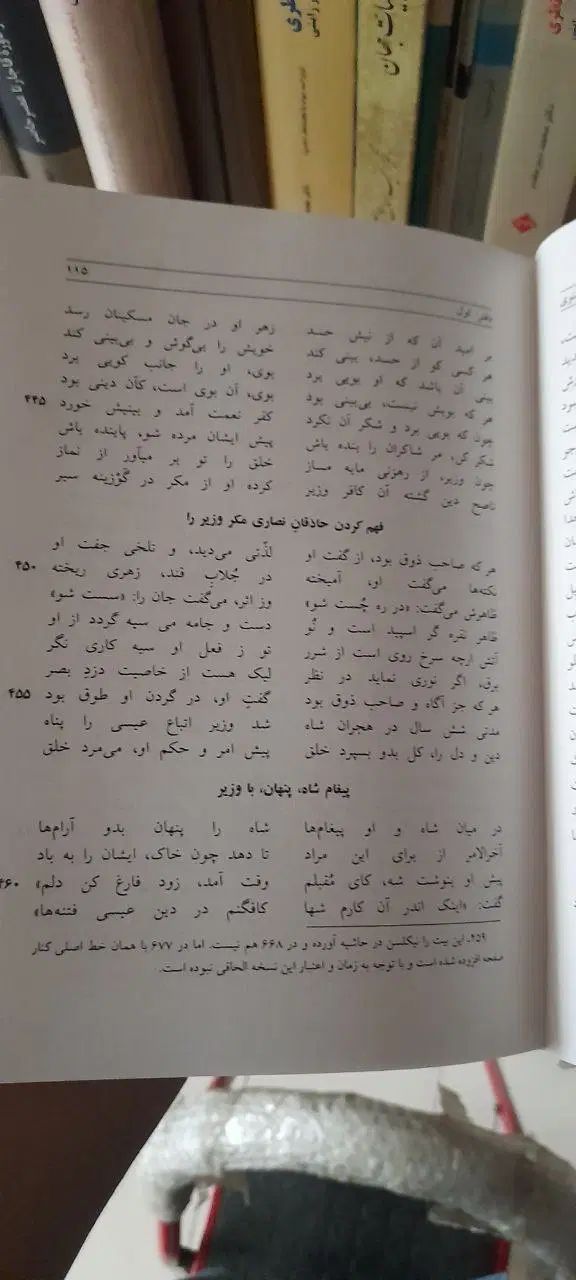 نظری
جهان
نظری
۱۱۵
دفتر اول
بر امید آن که از نیش حسد زهر او در جان مسکینان رسد
هر کسی کو از حسد، بینی کند خویش را بی‌گوش و بی‌بینی کند
بینی آن باشد که او بویی برد بوی، او را جانب کویی برد
هر که بویش نیست، بی‌بینی بود بوی، آن بوی است، کآن دینی بود
چون که بویی برد و شکر آن نکرد کفر نعمت آمد و بینیش خورد ۴۴۵
شکر کن، مر شاکران را بنده باش پیش ایشان مرده شو، پاینده باش
چون وزیر، از رهزنی مایه مساز خلق را تو بر میاور از نماز
ناصح دین گشته آن کافر وزیر کرده او از مکر در گوزینه سیر
فهم کردن حاذقان نصاری مکر وزیر را
هر که صاحب ذوق بود، از گفت او لذّتی می‌دید، و تلخی جفت او
نکته‌ها می‌گفت او، آمیخته در جُلابِ قند، زهری ریخته ۴۵۰
ظاهرش می‌گفت: «در ره چُست شو» وز اثر، می‌گفت جان را: «سست شو»
ظاهر نقره گر اسپید است و نُو دست و جامه می سیه گردد از او
آتش ارچه سرخ روی است از شرر تو ز فعل او سیه کاری نگر
برق، اگر نوری نماید در نظر لیک هست از خاصیت دزدِ بصر
هر که جز آگاه و صاحب ذوق بود گفتِ او، در گردن او طوق بود ۴۵۵
مدتی شش سال در هجران شاه شد وزیر اتباع عیسی را پناه
دین و دل را، کل بدو بسپرد خلق پیش امر و حکم او، می‌مرد خلق
پیغام شاه، پنهان، با وزیر
در میان شاه و او پیغام‌ها شاه را پنهان بدو آرام‌ها
آخرالامر از برای این مراد تا دهد چون خاک، ایشان را به باد
پیش او بنوشت شه، کای مُقبلم وقت آمد، زود فارغ کن دلم» ۴۶۰
گفت: «اینک اندر آن کارم شها کافگنم در دین عیسی فتنه‌ها»
۴۵۹. این بیت را نیکلسن در حاشیه آورده و در ۶۶۸ هم نیست. اما در ۶۷۷ با همان خط اصلی کنار
صفحه افزوده شده است و با توجه به زمان و اعتبار این نسخه الحاقی نبوده است.